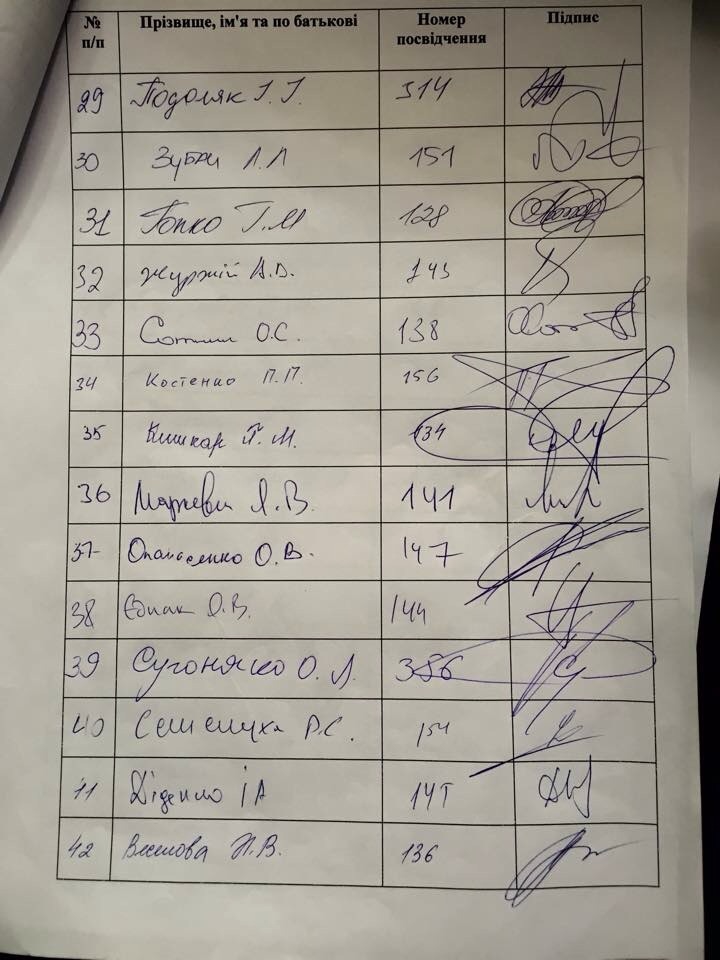 № Прізвище, ім'я та по батькові Номер Підпис
п/п посвідчення
29 Подоляк І. І. 314
30 Зубач Л.Л 151
31 Гопко Г.М 128
32 Журжій А.В. 143
33 Сотник О.С. 138
34 Костенко П.П. 156
35 Кишкар П. М. 134
36 Маркевич Я.В. 141
37 Опанасенко О.В. 147
38 Єднак О.В. 144
39 Сугоняко О.Л. 356
40 Семенуха Р.С. 154
41 Діденко ІА 147
42 Веселова Н.В. 136